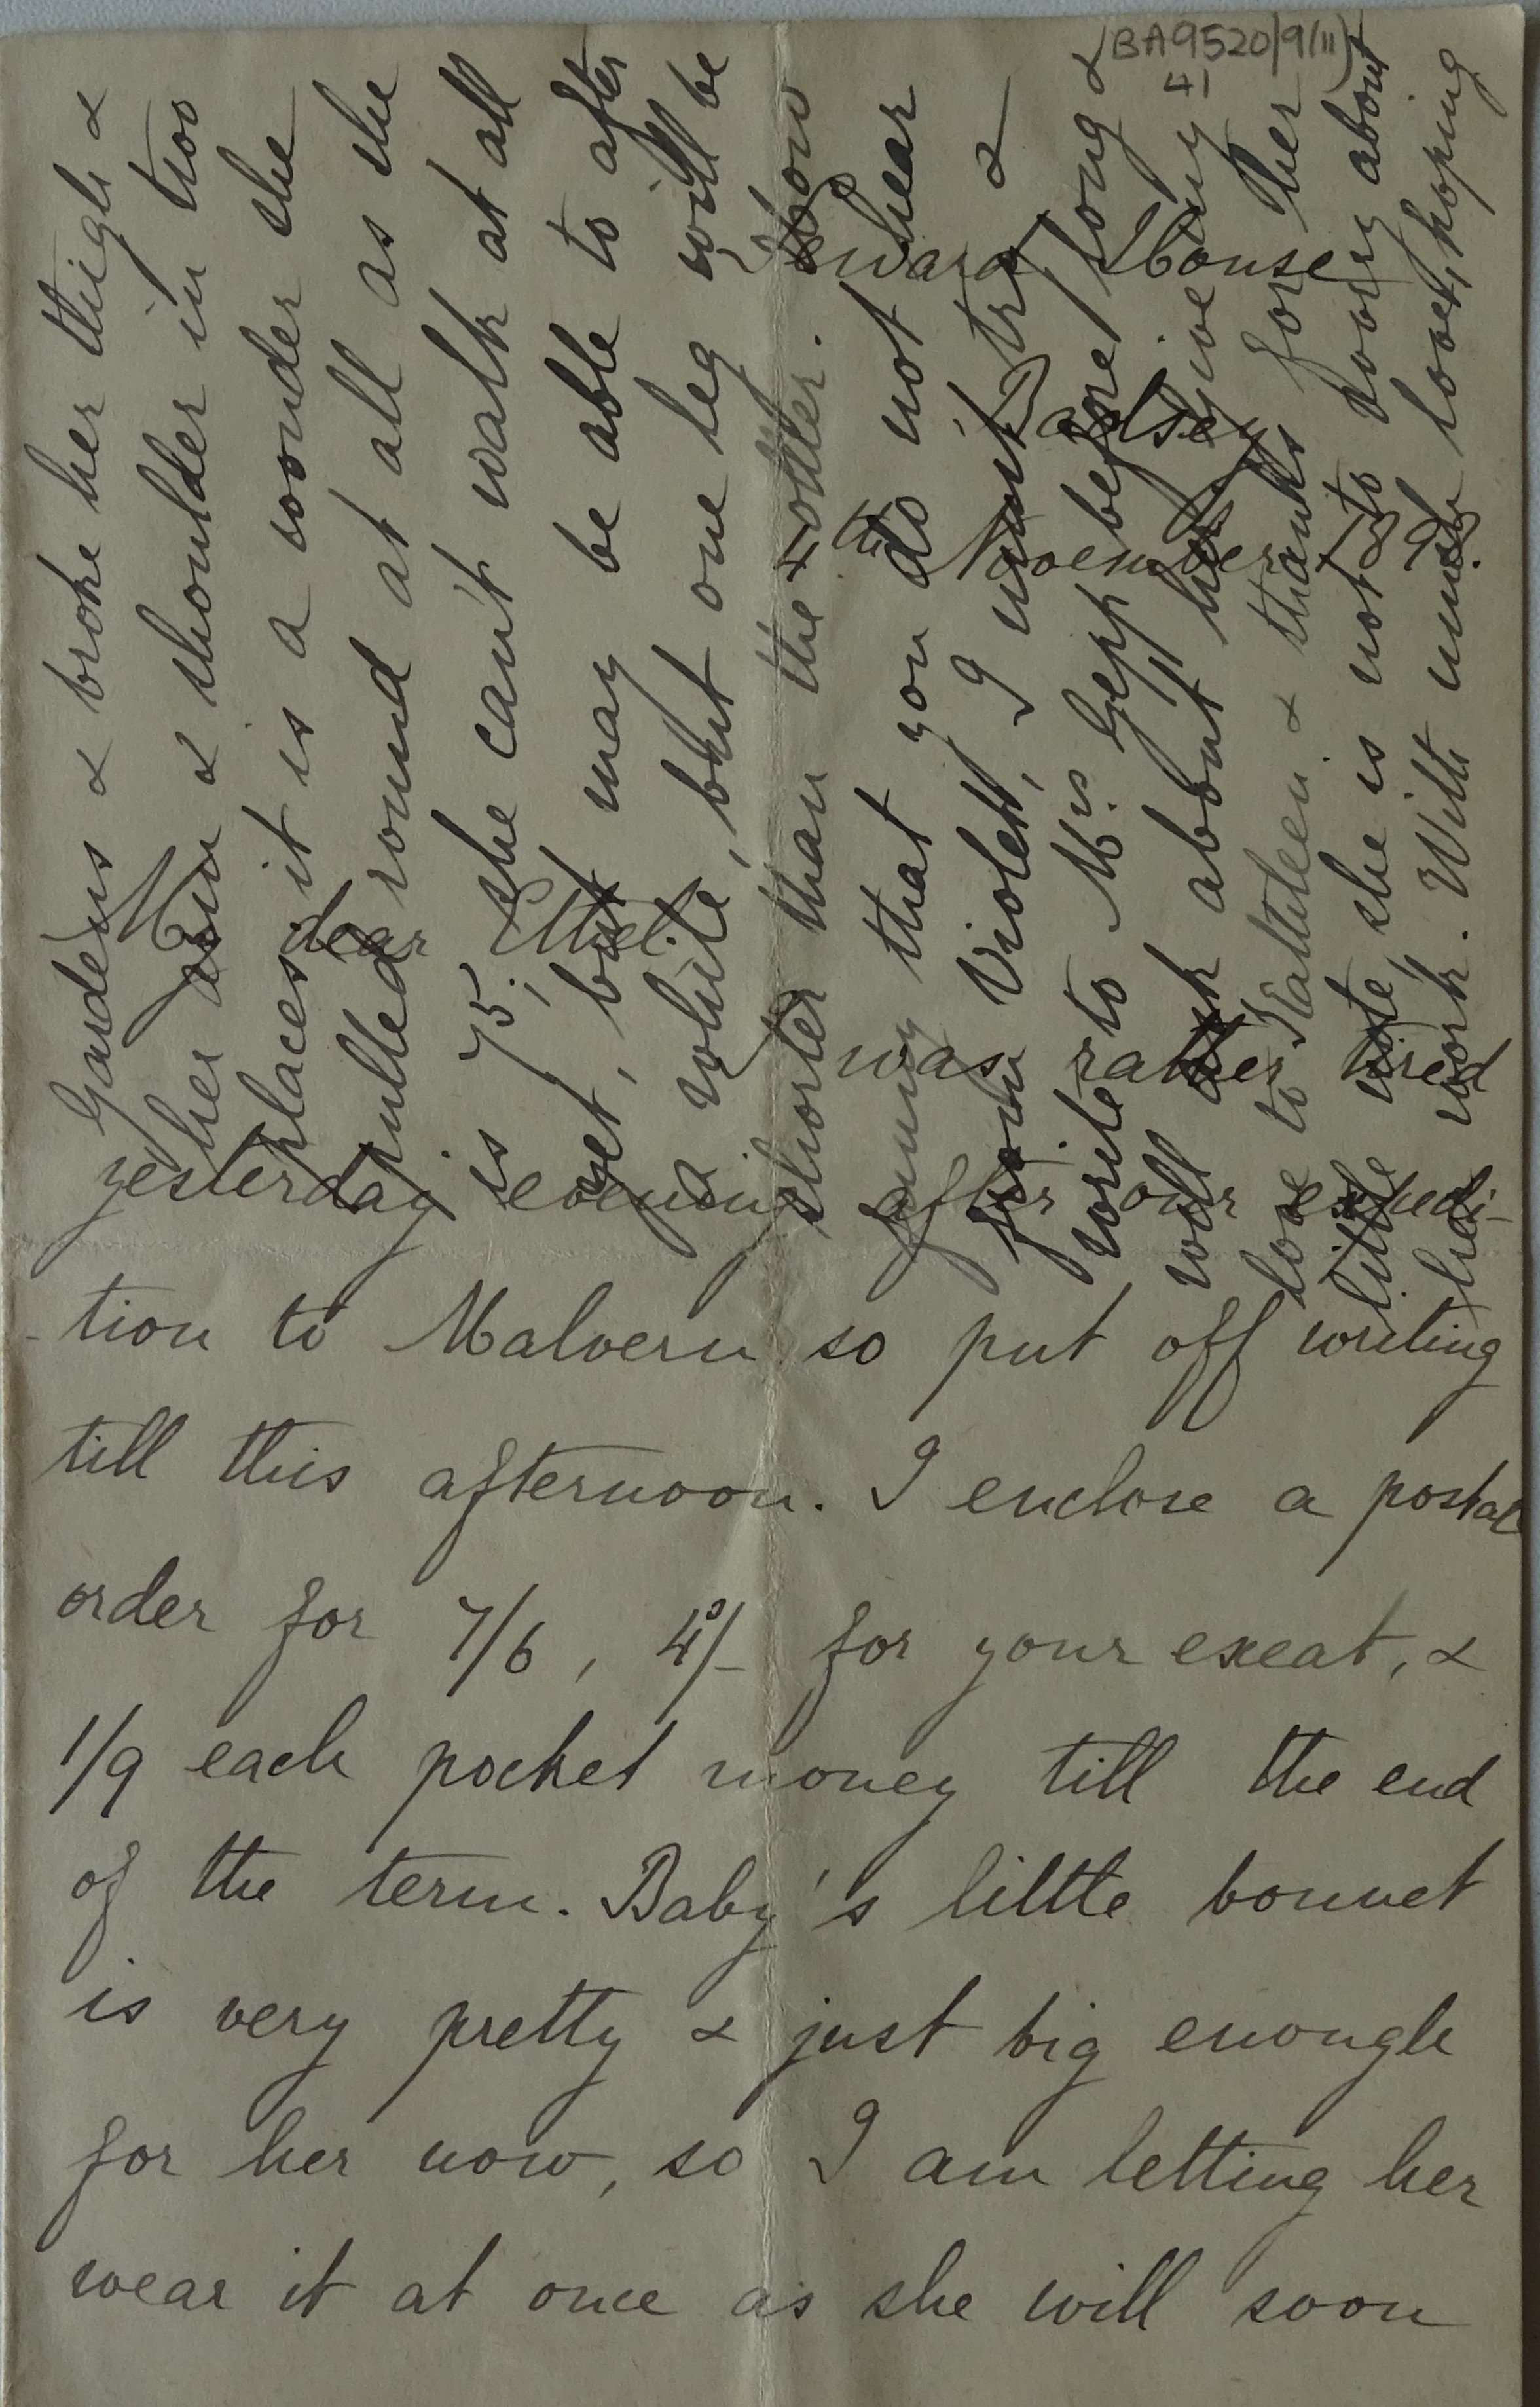 (BA9520/9/11)
41
Seward House
Badsey
4th November 1898.
My dear Ethel.
I was rather tired
yesterday evening after our expedi-
-tion to Malvern so put off writing
till this afternoon. I enclose a postal
order for 7/6, 4/- for your exeat, &
1/9 each pocket money till the end
of the term. Baby's little bonnet
is very pretty & just big enough
for her now, so I am letting her
wear it at once as she will soon
Gardens & broke her thigh &
her arm & shoulder in two
places, it is a wonder she
pulled round at all as she
is 75; she can't walk at all
yet, but may be able to after
a while, but one leg will be
shorter than the other. How
funny that you do not hear
from Violet, I must try &
write to Mrs. Gepp before long &
will ask about her. Give my
love to Kathleen & thanks for her
little note, she is not to worry about
her work. With much love, hoping